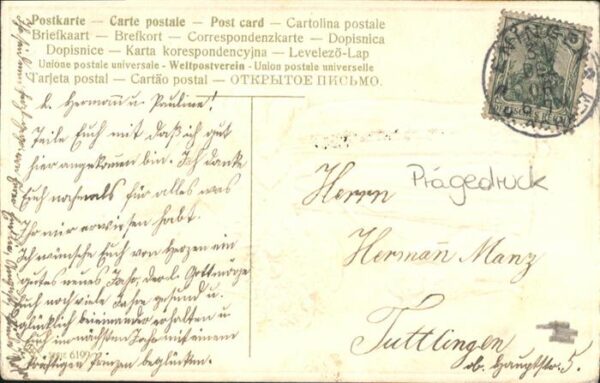 Postkarte — Carte postale — Post card — Cartolina postale
Briefkaart — Brefkort — Correspondenzkarte — Dopisnica
Dopisnice — Karta korespondencyjna — Levelező-Lap
Unione postale universale - Weltpostverein - Union postale universelle
Tarjeta postal — Cartão postal — ОТКРЫТОЕ ПИСЬМО.
L. Hermann u. Pauline!
Teile Euch mit daß ich gut
hier angekommen bin. Ich danke
Euch nochmals für alles was
Ihr mir erwiesen habt.
Ich wünsche Euch von Herzen ein
gutes neues Jahr, der l. Gott möge
Euch noch viele Jahre gesund u.
glücklich beieinander erhalten u.
Euch im nächsten Jahr mit einem
kräftigen Prinzen beglücken.
6199
Herrn
Prägedruck
Hermañ Manz
Tuttlingen
ob. Hauptstr. 5.